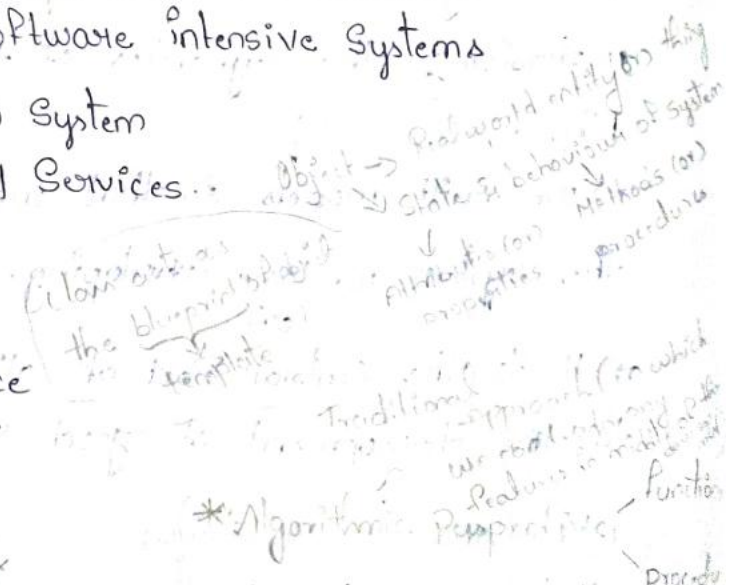 oftware intensive Systems
System
d Services..
Object → Real world entity (or) thing
State & behaviour of system
Attributes (or) properties
Methods (or) procedures
Class acts as
the blueprint of object
template
Traditional approach (in which
features in middle of the
* Algorithmic Perspective
function
Procedu